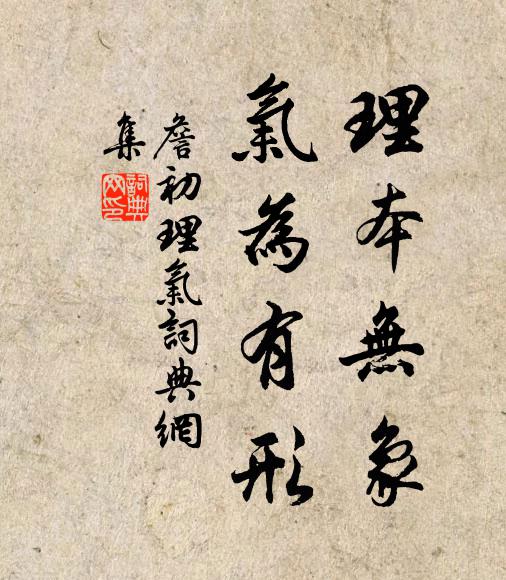 理本無象
氣為有形
詹初理氣詞典網
集
詞典網印